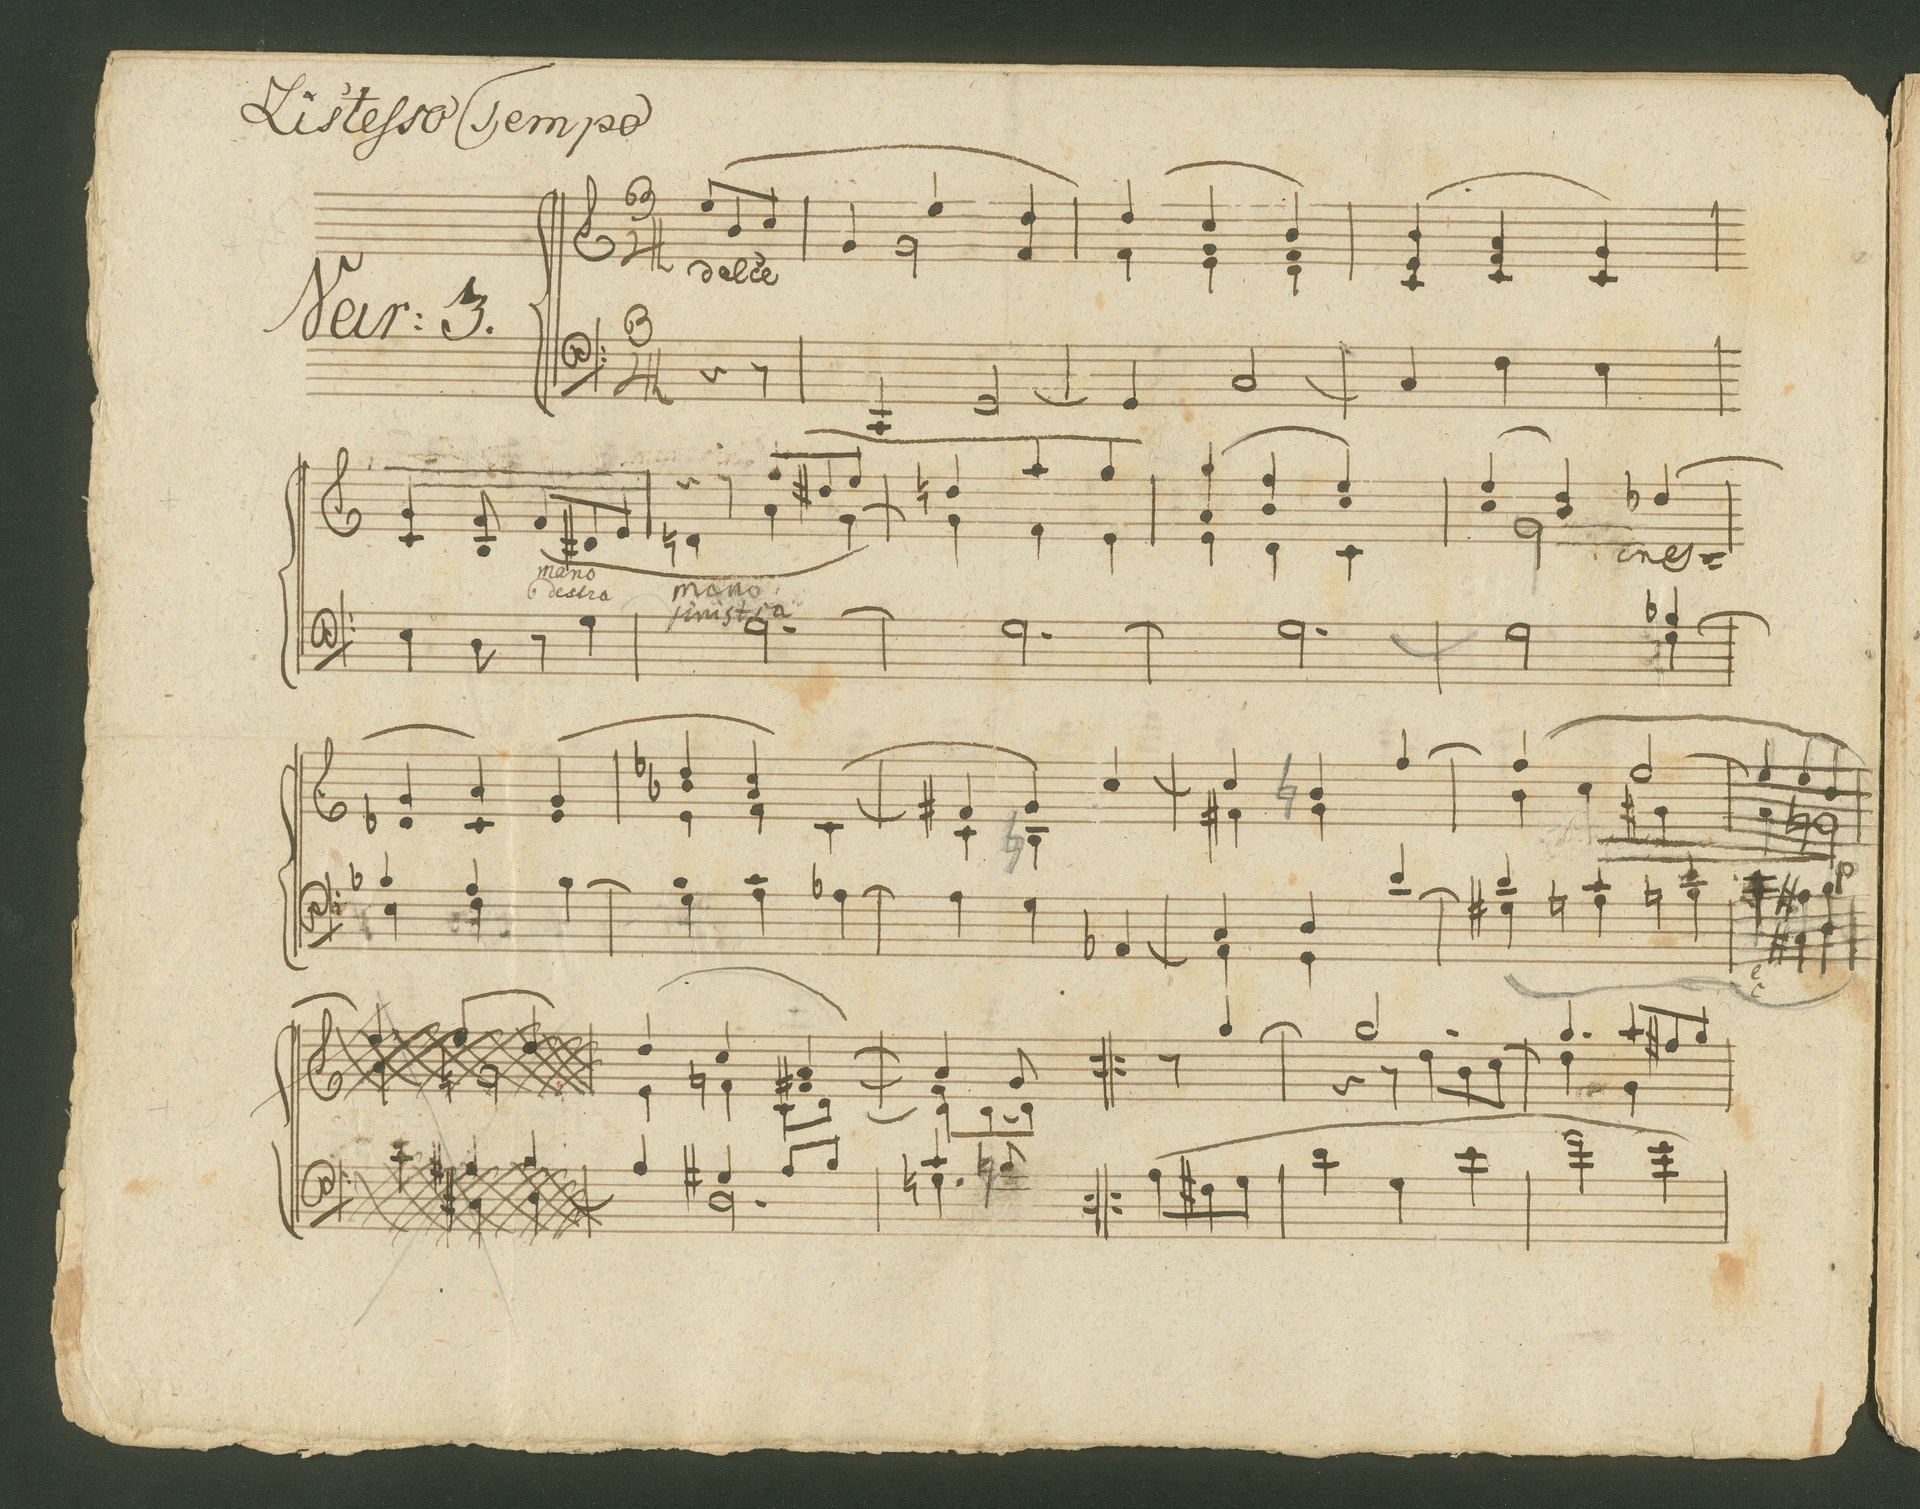 Listesso Tempo
3
4
dolce
Var: 3.
3
4
mano
destra
mano
sinistra
cres=
p